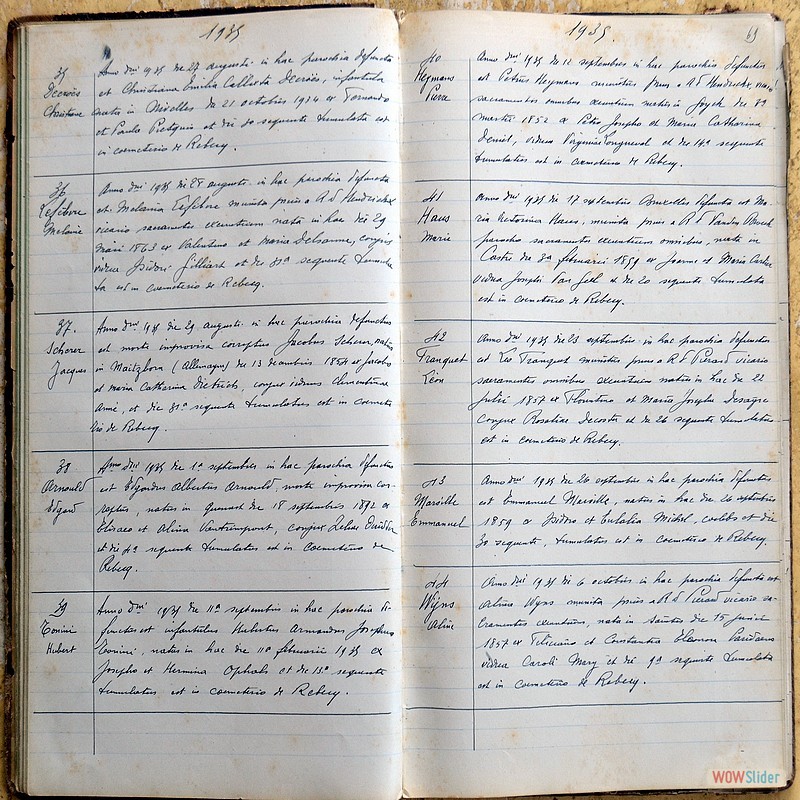 1935
35
Decroës
Christiane
Anno dni 1935 die 27 augusti in hac parochia defuncta
est Christiana Emilia Callixta Decroës, infantula
nata in Nivelles die 21 octobris 1934 ex Fernando
et Paula Pietquin et die 30 sequente tumulata est
in coemeterio de Rebecq.
36
Lefebvre
Melanie
Anno dni 1935 die 28 augusti in hac parochia defuncta
est Melania Lefebvre munita prius a R d Hendrickx
vicario sacramentis exeuntium nata in hac die 29
1863 ex Valentino et Maria Delsamme, conjux
vidua Isidori Gilliard et die 31a sequente tumula
ta est in coemeterio de Rebecq.
37.
Scherer
Jacques
Anno dni 1935 die 29 augusti in hac parochia defunctus
est morte improvisa correptus Jacobus Scherer, natus
in (Allemagne) die 13 decembris 1854 ex Jacobo
et Maria Catharina Dietrich, conjux viduus Clementinae
Anné, et die 31a sequente tumulatus est in coemete
rio de Rebecq.
38
Arnould
Edgard
Anno dni 1935 die 1a septembris in hac parochia defunctus
est Edgardus Albertus Arnould, morte improvisa cor-
reptus, natus in Quenast die 18 septembris 1892 ex
Elisaeo et Alina Vantrimpont, conjux Zeliae
et die 4a sequente tumulatus est in coemeterio de
Rebecq.
39
Tonini
Hubert
Anno dni 1935 die 11a septembris in hac parochia de
functus est infantulus Hubertus Armandus Josephus
Tonini, natus in hac die 11a februarii 1935 ex
Josepho et Hermina Ophals et die 13a sequente
tumulatus est in coemeterio de Rebecq.
1935.
63
40
Heymans
Pierre
Anno dni 1935 die 12 septembris in hac parochia defunctus
est Petrus Heymans munitus prius a R d Hendrickx, vicario
sacramentis omnibus exeuntium natus in die 29
martii 1852 ex Petro Josepho et Maria Catharina
Deniel, viduus Virginiae Longueval et die 14a sequente
tumulatus est in coemeterio de Rebecq.
41
Haus
Marie
Anno dni 1935 die 17 septembris Bruxelles defuncta est Ma
ria Victorina Haus, munita prius a R d Vanden Bosch
parocho sacramentis exeuntium omnibus, nata in
Castre die 3a februarii 1859 ex Joanne et Maria
vidua Josephi Van et die 20 sequente tumulata
est in coemeterio de Rebecq.
42
Franquet
Léon
Anno dni 1935 die 23 septembris in hac parochia defunctus
est Leo Franquet munitus prius a R d Pierard vicario
sacramentis omnibus exeuntium natus in hac die 22
julii 1857 ex Florentino et Maria Josepha Desagre
conjux Rosaliae Decoster et die 26 sequente tumulatus
est in coemeterio de Rebecq.
43
Marsille
Emmanuel
Anno dni 1935 die 26 septembris in hac parochia defunctus
est Emmanuel Marsille, natus in hac die 26 septembris
1859 ex Isidoro et Eulalia Michel, coelebs et die
30 sequente, tumulatus est in coemeterio de Rebecq.
44
Wyns
Aline
Anno dni 1935 die 6 octobris in hac parochia defuncta est
Alina Wyns munita prius a R d Pierard vicario sa-
cramentis exeuntium, nata in Saintes die 15 junii
1857 ex Feliciano et Constantia Eleonora Paridaens
vidua Caroli Mary et die 9a sequente tumulata
est in coemeterio de Rebecq.
WOWSlider